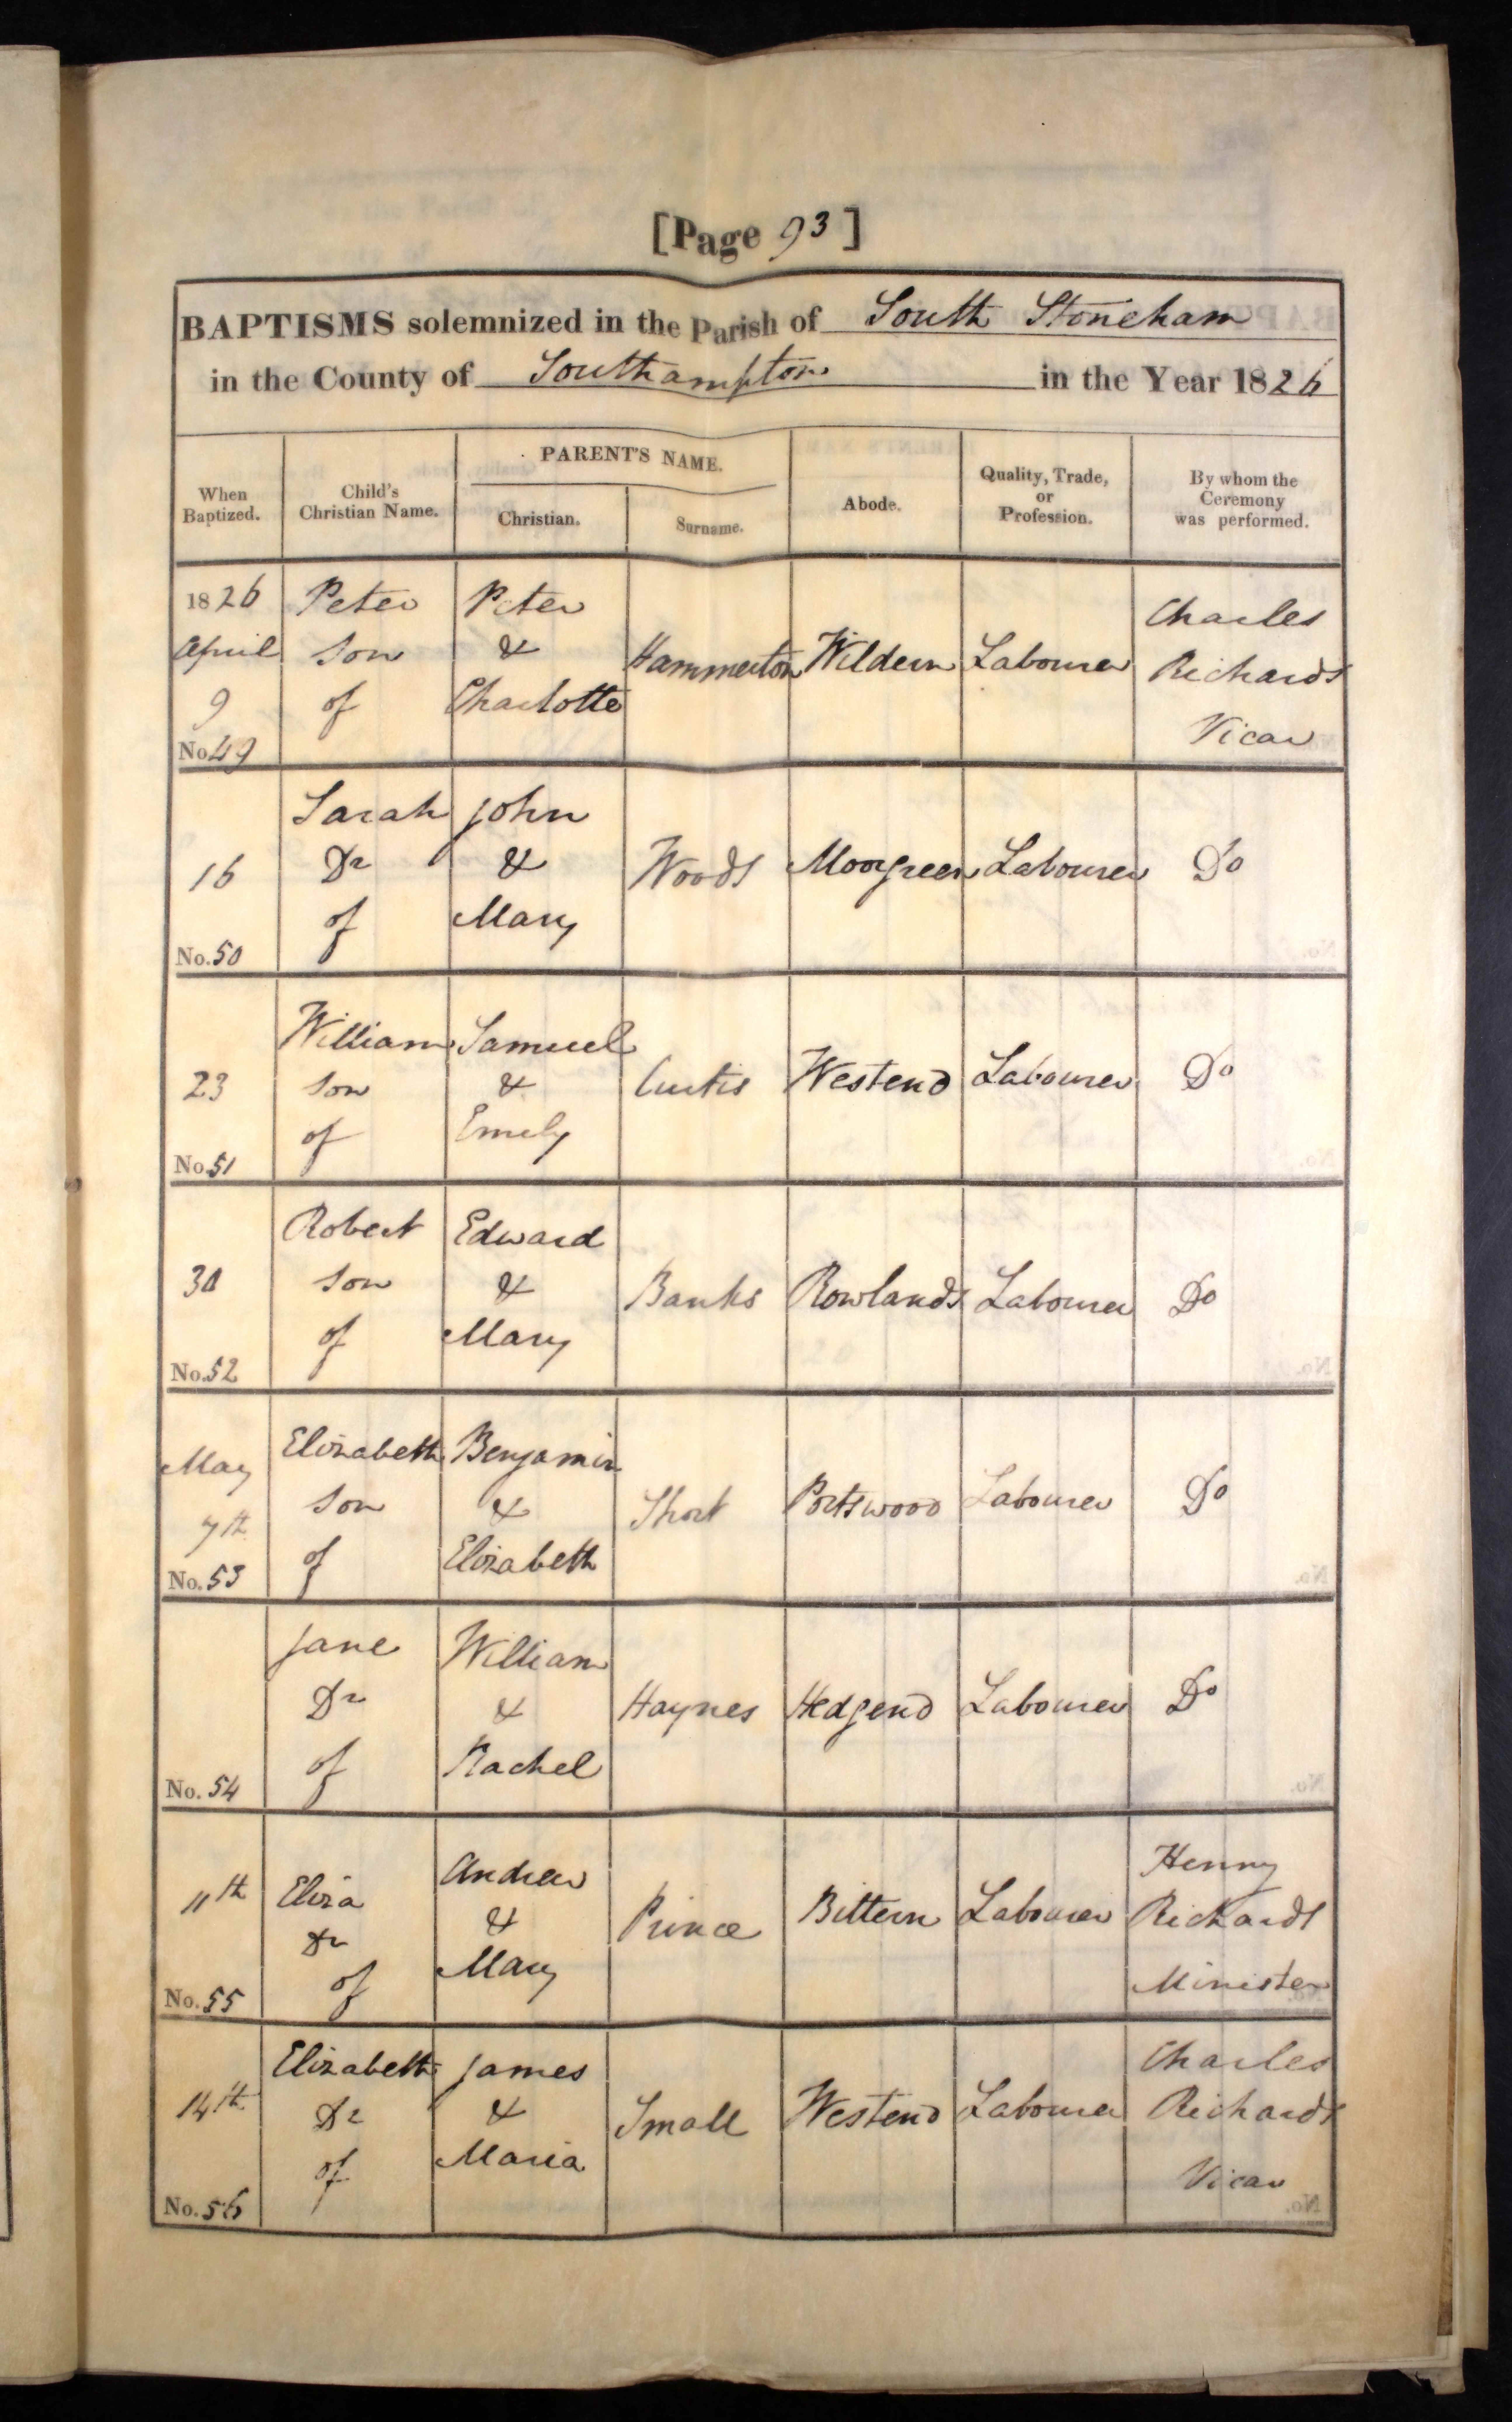 [Page 93]
BAPTISMS solemnized in the Parish of South Stoneham
in the County of Southampton in the Year 1826
When Baptized. Child's Christian Name. PARENT'S NAME. Christian. Surname. Abode. Quality, Trade, or Profession. By whom the Ceremony was performed.
1826 Peter Peter Charles
April son & Hammerton Wildern Labourer Richards
9 of Charlotte Vicar
No. 49
Sarah John
16 Dr & Woods Moorgreen Labourer Do
of Mary
No. 50
William Samuel
23 son & Curtis Westend Labourer Do
of Emely
No. 51
Robert Edward
30 son & Banks Rowlands Labourer Do
of Mary
No. 52
May Elizabeth Benjamin
7th son & Short Portswood Labourer Do
of Elizabeth
No. 53
Jane William
Dr & Haynes Hedgend Labourer Do
of Rachel
No. 54
Andrew Henry
11th Eliza & Prince Bittern Labourer Richards
Dr Mary Minister
of
No. 55
Elizabeth James Charles
14th Dr & Small Westend Labourer Richards
of Maria Vicar
No. 56